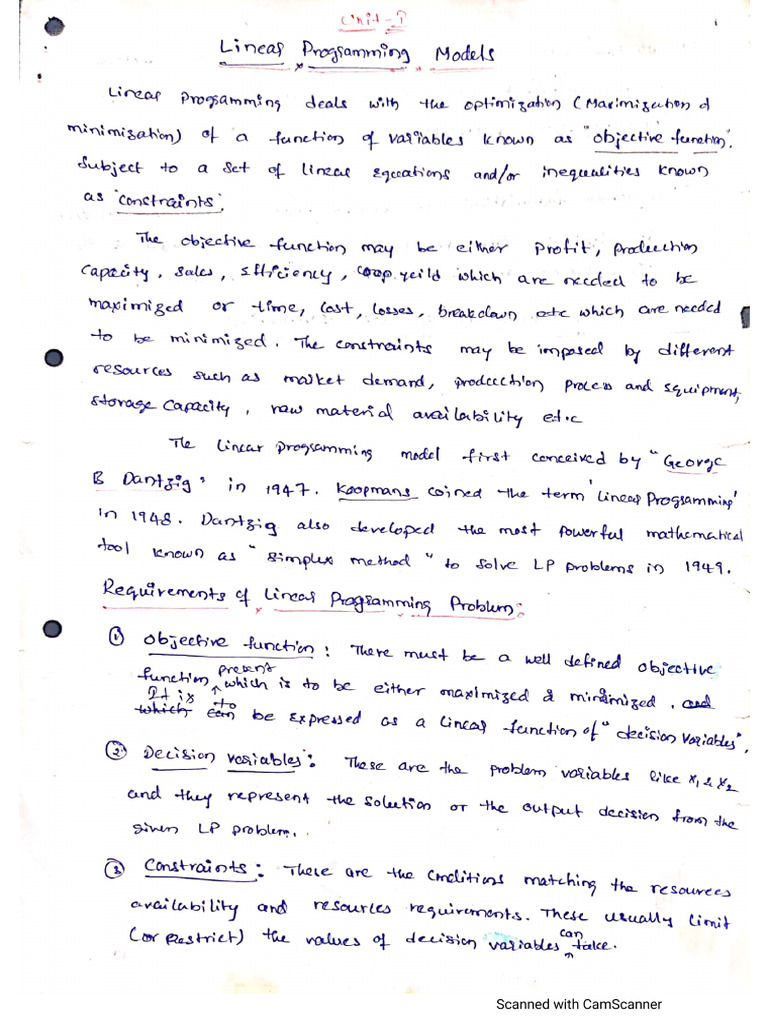 Unit-I
1
Linear Programming Models
Linear programming deals with the optimization (Maximization &
minimization) of a function of variables known as "objective function".
Subject to a set of linear equations and/or inequalities known
as "constraints".
The objective function may be either Profit, production
Capacity, Sales, Efficiency, Coop yeild which are needed to be
maximized or time, Cost, losses, breakdown etc which are needed
to be minimized. The constraints may be imposed by different
resources such as market demand, production process and equipment,
storage capacity, raw material availability et.c
The linear programming model first conceived by "George
B Dantzig" in 1947. Koopmans coined the term 'Linear Programming'
in 1948. Dantzig also developed the most powerful mathematical
tool known as "simplex method" to solve LP problems in 1949.
Requirements of Linear Programming Problem:
① Objective function: There must be a well defined objective
present
function which is to be either maximized & minimized. and
It is to
which can be expressed as a linear function of "decision variables".
② Decision variables: These are the problem variables like x1 & x2
and they represent the solution or the output decision from the
given LP problem.
③ Constraints: These are the conditions matching the resources
availability and resources requirements. These usually limit
can
(or restrict) the values of decision variables take.
Scanned with CamScanner